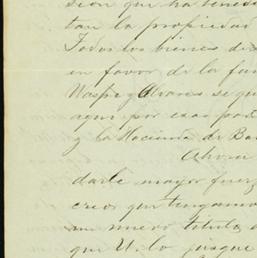 sion que ha
tan la propiedad
Todos los bienes de
en favor de la fun
y Alvares se que
aqui por esas
y la Hacienda de Ba
Ahora
darle mayor fuerz
creo que tengamos
un nuevo titulo, e
que U. lo juzgue